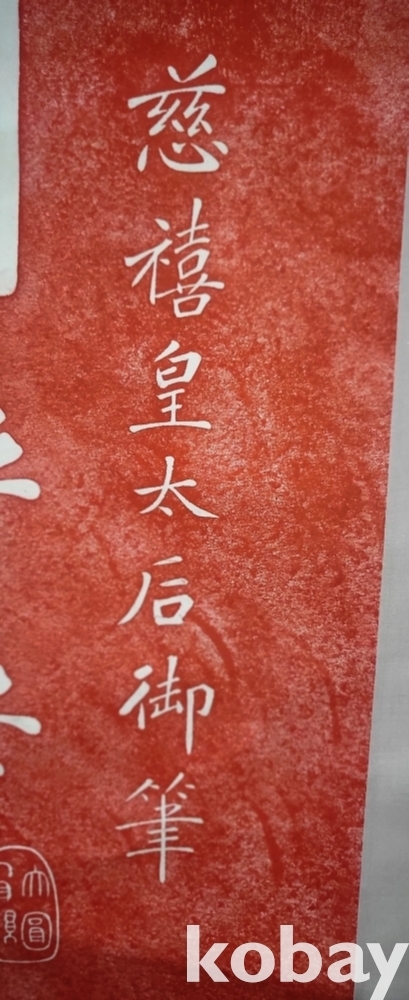 慈禧皇太后御筆
kobay